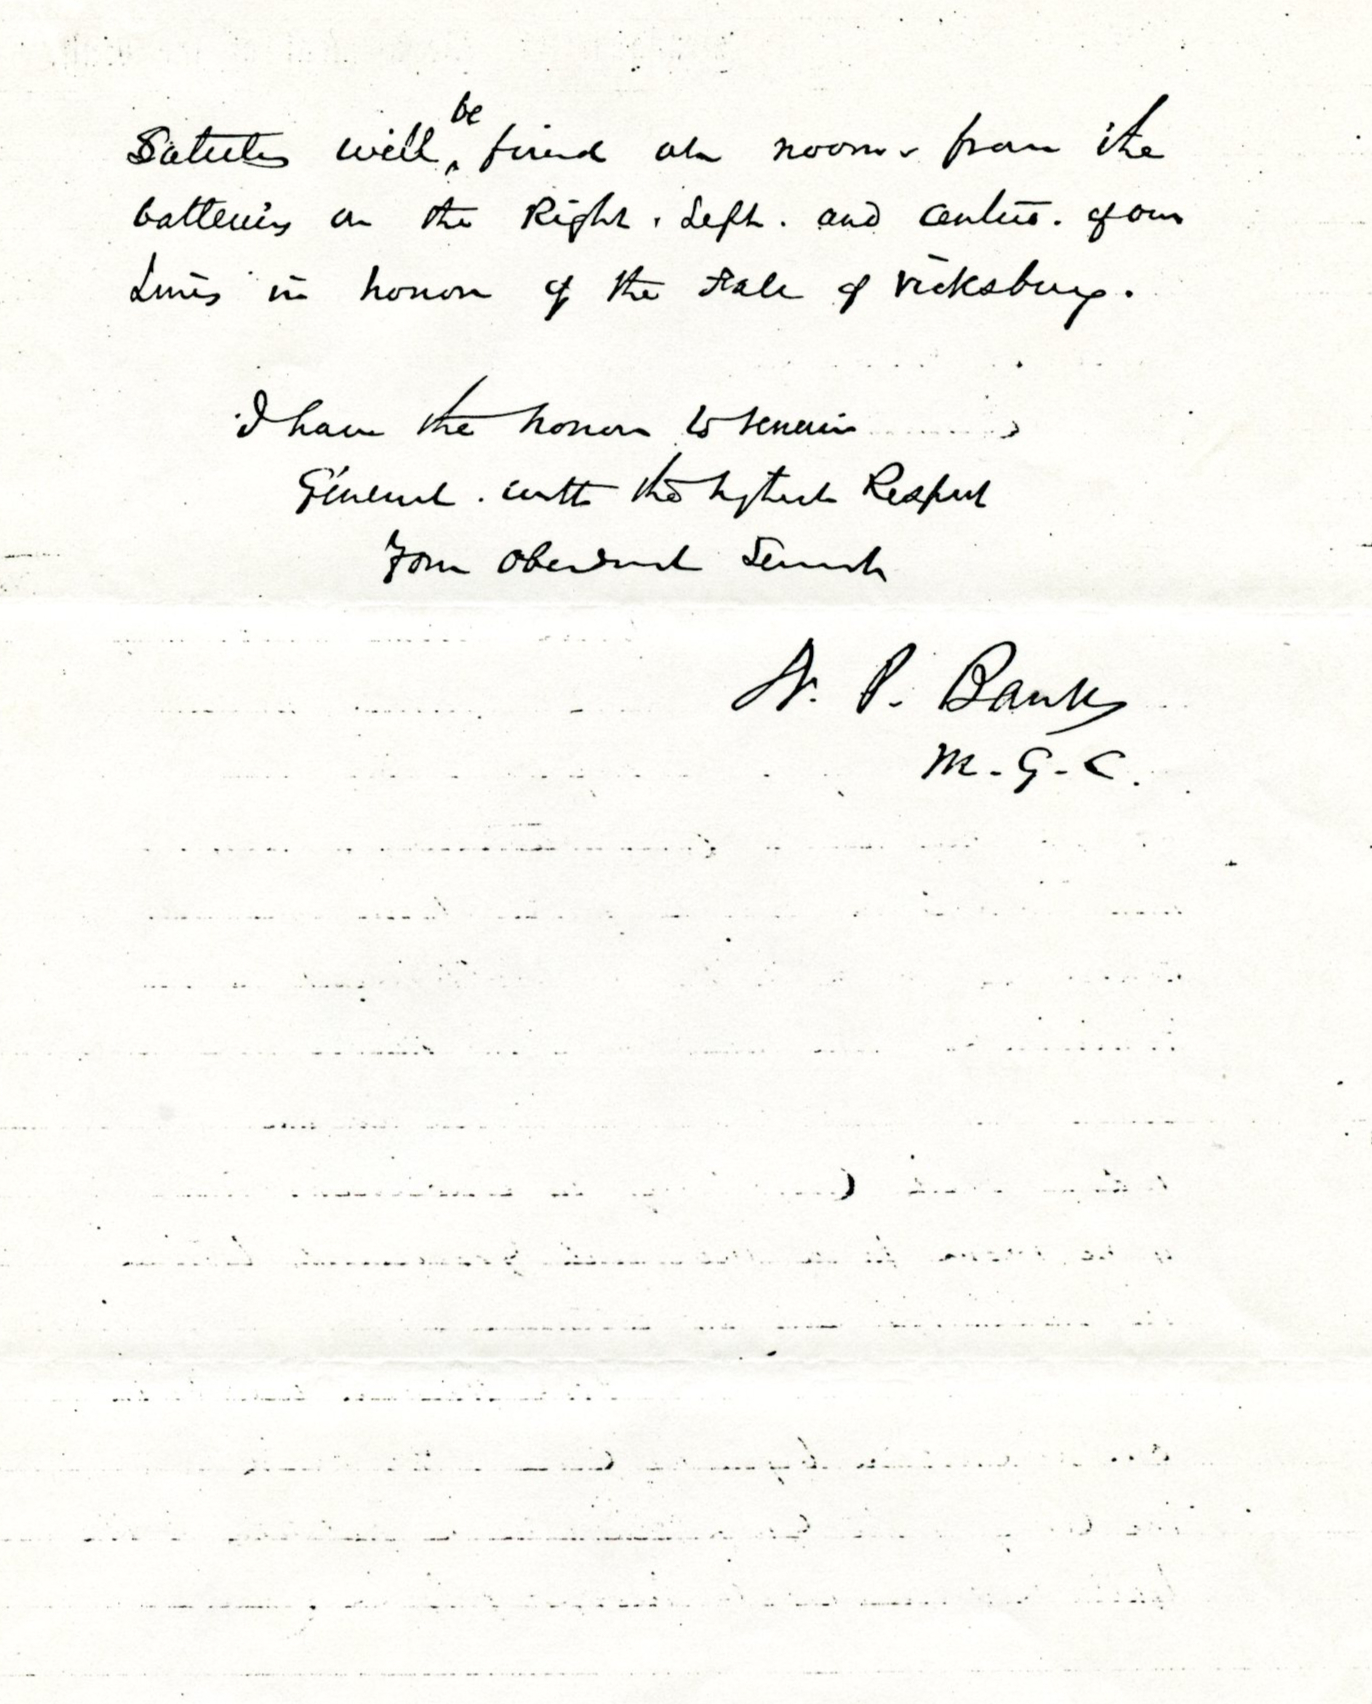 Salutes will be fired at noon from the
batteries on the Right. Left. and centre. of our
Lines in honor of the Fall of Vicksburg.
I have the honor to remain
General. with the highest Respect
Your Obedient Servant
N. P. Banks
M.G.C.